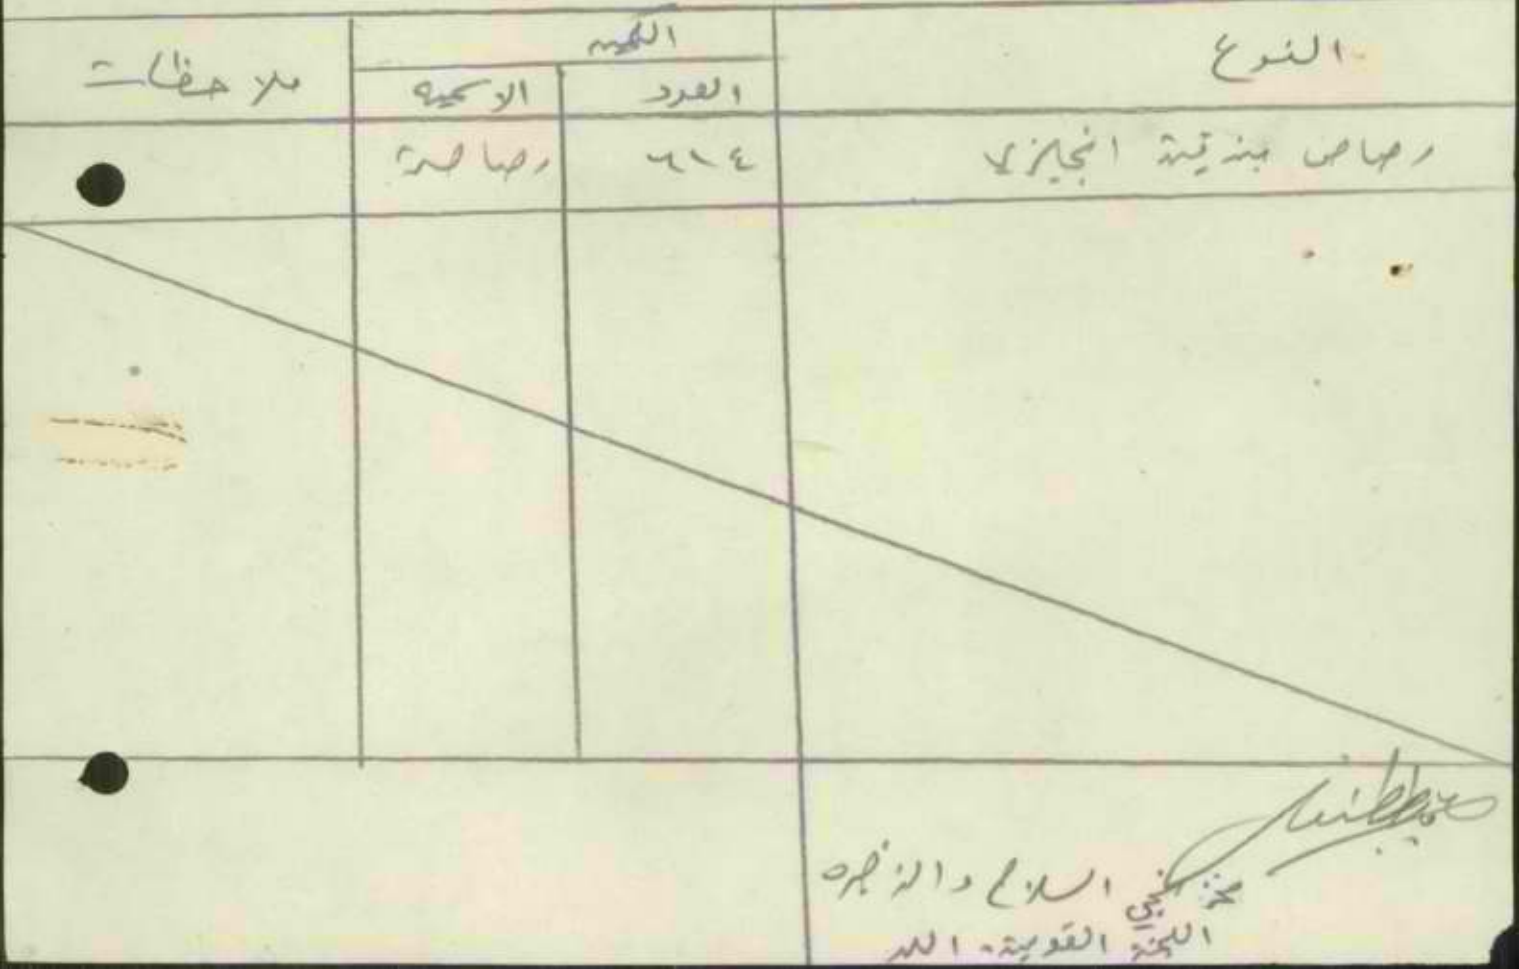 النوع
الكمية
العدد
الاسمية
ملاحظات
رصاص بندقية انجليزي
٦١٤
رصاصة
مخزنجي السلاح والذخيره
اللجنة القومية - اللد